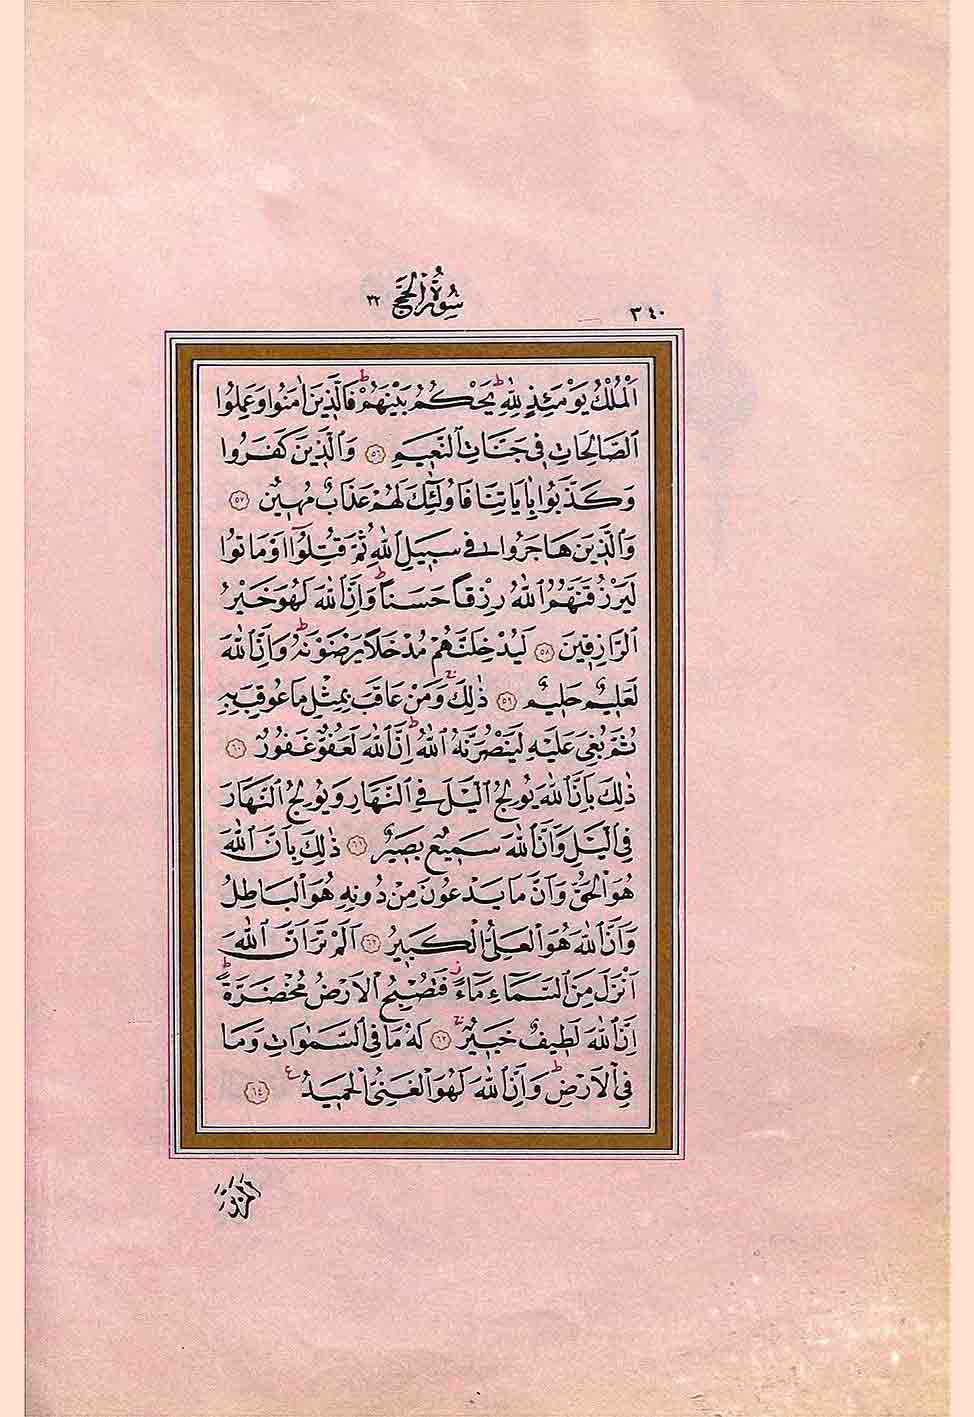 ٣٤٠
سُورَةُ الْحَجِّ ٢٢
اَلْمُلْكُ يَوْمَئِذٍ لِلّٰهِۜ يَحْكُمُ بَيْنَهُمْۜ فَالَّذ۪ينَ اٰمَنُوا وَعَمِلُوا
الصَّالِحَاتِ ف۪ي جَنَّاتِ النَّع۪يمِ ٥٦ وَالَّذ۪ينَ كَفَرُوا
وَكَذَّبُوا بِاٰيَاتِنَا فَاُو۬لٰٓئِكَ لَهُمْ عَذَابٌ مُه۪ينٌ ٥٧
وَالَّذ۪ينَ هَاجَرُوا ف۪ي سَب۪يلِ اللّٰهِ ثُمَّ قُتِلُٓوا اَوْ مَاتُوا
لَيَرْزُقَنَّهُمُ اللّٰهُ رِزْقًا حَسَنًاۜ وَاِنَّ اللّٰهَ لَهُوَ خَيْرُ
الرَّازِق۪ينَ ٥٨ لَيُدْخِلَنَّهُمْ مُدْخَلًا يَرْضَوْنَهُۜ وَاِنَّ اللّٰهَ
لَعَل۪يمٌ حَل۪يمٌ ٥٩ ذٰلِكَۚ وَمَنْ عَاقَبَ بِمِثْلِ مَا عُوقِبَ بِه۪
ثُمَّ بُغِيَ عَلَيْهِ لَيَنْصُرَنَّهُ اللّٰهُۜ اِنَّ اللّٰهَ لَعَفُوٌّ غَفُورٌ ٦٠
ذٰلِكَ بِاَنَّ اللّٰهَ يُولِجُ الَّيْلَ فِي النَّهَارِ وَيُولِجُ النَّهَارَ
فِي الَّيْلِ وَاَنَّ اللّٰهَ سَم۪يعٌ بَص۪يرٌ ٦١ ذٰلِكَ بِاَنَّ اللّٰهَ
هُوَ الْحَقُّ وَاَنَّ مَا يَدْعُونَ مِنْ دُونِه۪ هُوَ الْبَاطِلُ
وَاَنَّ اللّٰهَ هُوَ الْعَلِيُّ الْكَب۪يرُ ٦٢ اَلَمْ تَرَ اَنَّ اللّٰهَ
اَنْزَلَ مِنَ السَّمَٓاءِ مَٓاءًۘ فَتُصْبِحُ الْاَرْضُ مُخْضَرَّةًۜ
اِنَّ اللّٰهَ لَط۪يفٌ خَب۪يرٌۚ ٦٣ لَهُ مَا فِي السَّمٰوَاتِ وَمَا
فِي الْاَرْضِۜ وَاِنَّ اللّٰهَ لَهُوَ الْغَنِيُّ الْحَم۪يدُ ع ٦٤
اَلَمْ تَرَ